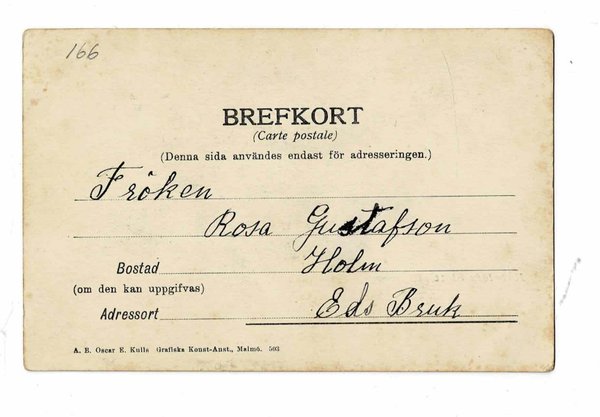 166
BREFKORT
(Carte postale)
(Denna sida användes endast för adresseringen.)
Fröken
Rosa Gustafson
Bostad Holm
(om den kan uppgifvas)
Adressort Eds Bruk
A. B. Oscar E. Kulls Grafiska Konst-Anst., Malmö. 503